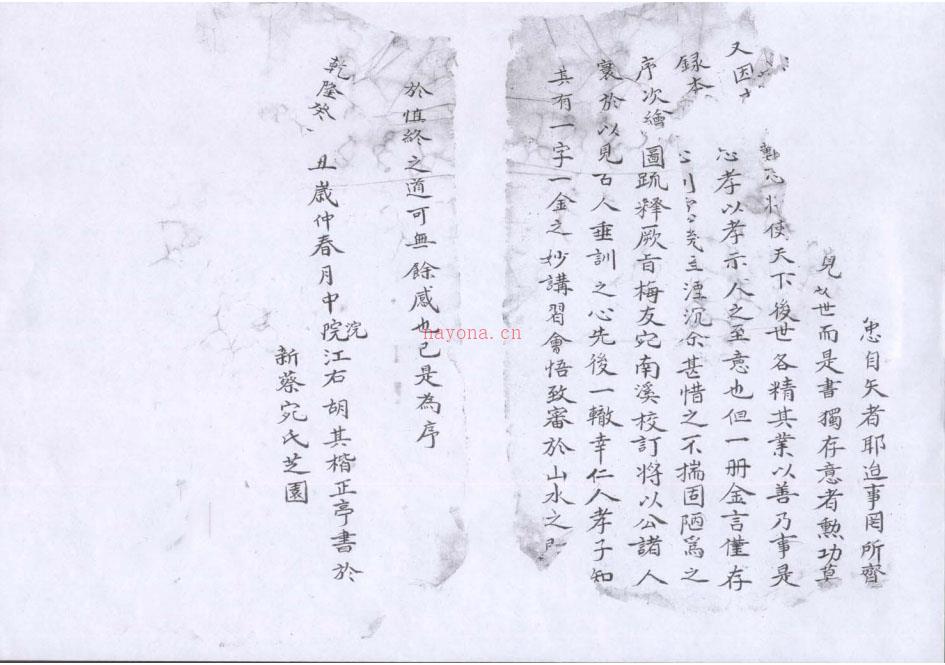 忠自矢者耶迨事罔所齊
見 世而是書獨存意者勲功草
使天下後世各精其業以善乃事是
又因 心孝以孝示人之至意也但一册金言僅存
録本 湮沉余甚惜之不揣固陋寫之
序次繪圖疏釋厥旨梅友宛南溪校訂將以公諸人
寰於以見古人垂訓之心先後一轍幸仁人孝子知
其有一字一金之妙講習會悟致審於山水之
於慎終之道可無餘感也已是為序
乾隆 丑歲仲春月中浣江右胡其楷正亭書於
院
新蔡宛氏芝園
nayona.cn